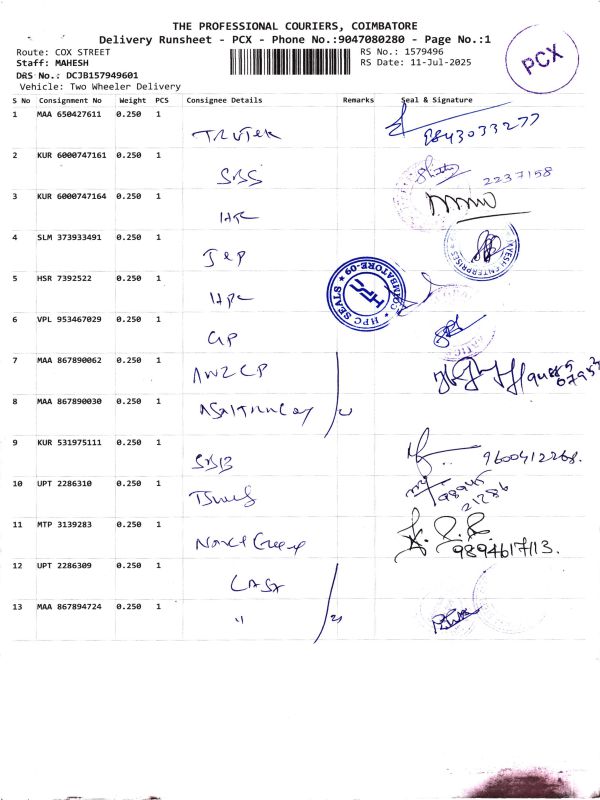 THE PROFESSIONAL COURIERS, COIMBATORE
Delivery Runsheet - PCX - Phone No.:9047080280 - Page No.:1
Route: COX STREET
RS No.: 1579496
Staff: MAHESH
RS Date: 11-Jul-2025
DRS No.: DCJB157949601
Vehicle: Two Wheeler Delivery
PCX
S No Consignment No Weight PCS Consignee Details Remarks Seal & Signature
1 MAA 650427611 0.250 1 9843033277
2 KUR 6000747161 0.250 1 SBS 2237158
3 KUR 6000747164 0.250 1 HPC
4 SLM 373933491 0.250 1 J&P
5 HSR 7392522 0.250 1 HPC
HPC SEATS COIMBATORE-09
6 VPL 953467029 0.250 1 GP
7 MAA 867890062 0.250 1
8 MAA 867890030 0.250 1
9 KUR 531975111 0.250 1 9600412268.
10 UPT 2286310 0.250 1 98945
21286
11 MTP 3139283 0.250 1 9894617113.
12 UPT 2286309 0.250 1
13 MAA 867894724 0.250 1 "